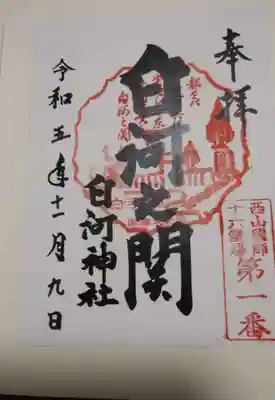 奉拝
西山國師
十六霊場
第一番
白河之関
白河神社
令和五年十一月九日